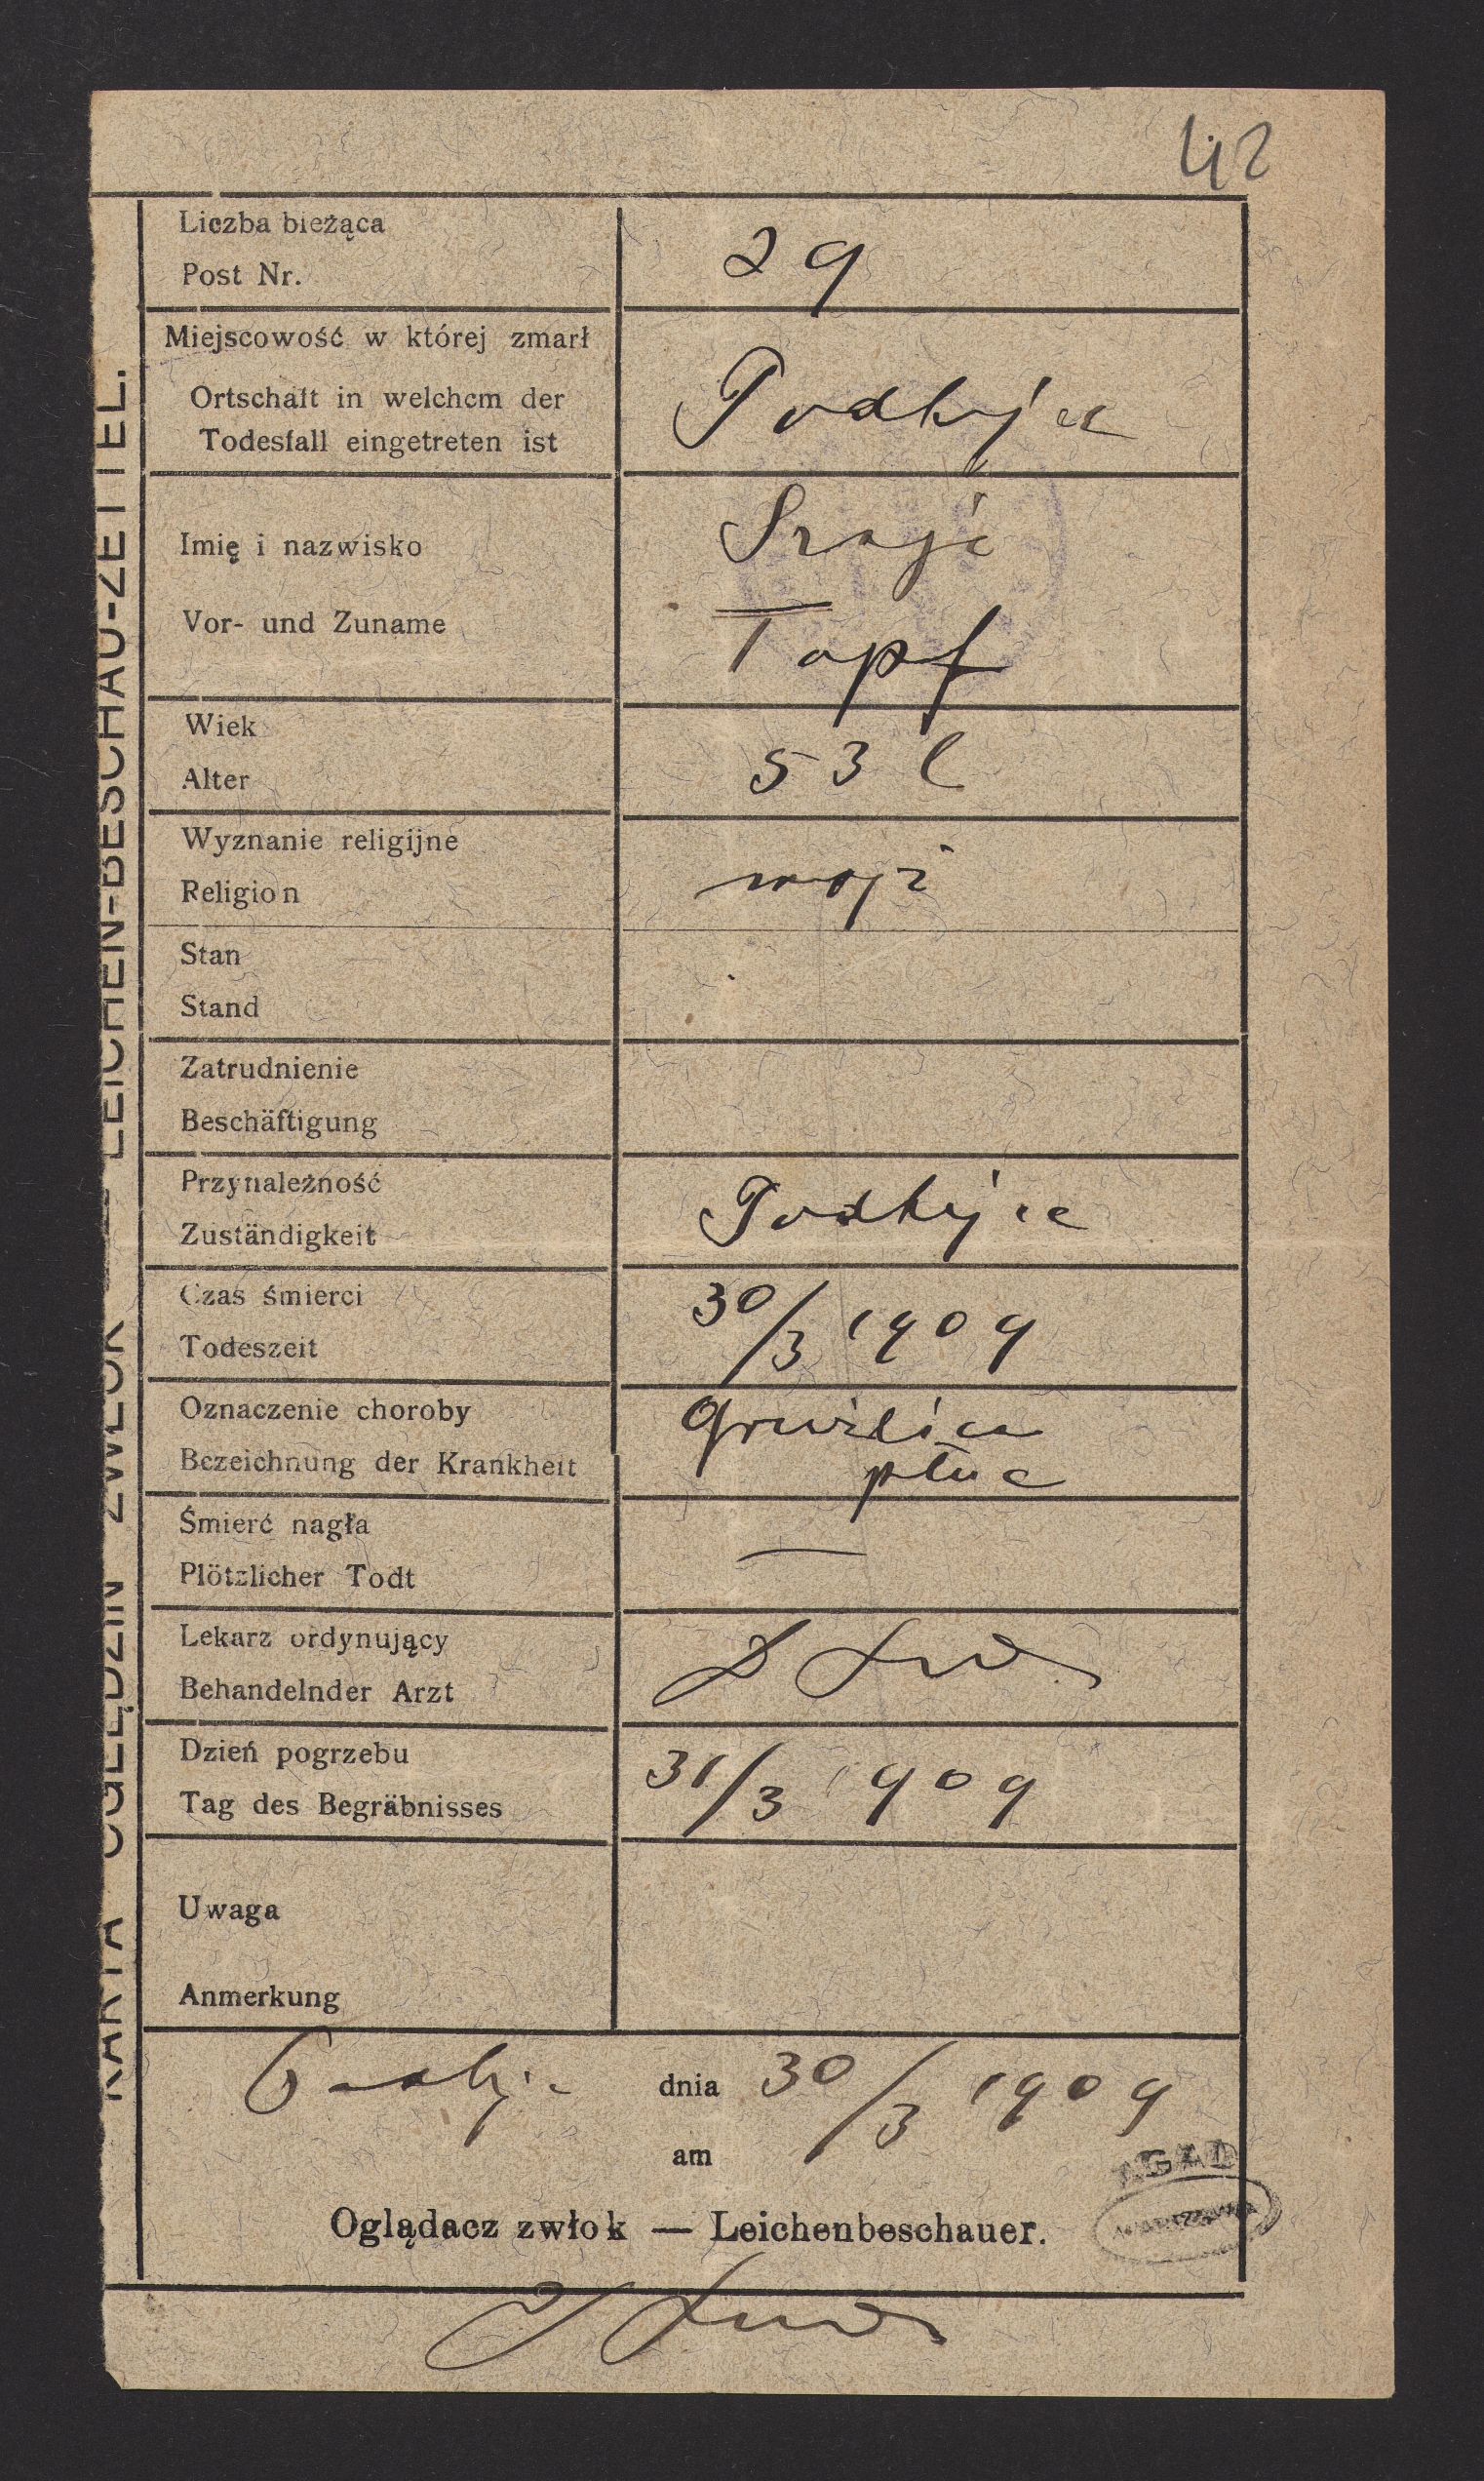 42
KARTA OGLĘDZIN ZWŁOK — LEICHEN-BESCHAU-ZETTEL.
Liczba bieżąca
Post Nr.
29
Miejscowość w której zmarł
Ortschaft in welchem der
Todesfall eingetreten ist
Podhajce
Imię i nazwisko
Vor- und Zuname
Topf
Wiek
Alter
53 l
Wyznanie religijne
Religion
mojż
Stan
Stand
Zatrudnienie
Beschäftigung
Przynależność
Zuständigkeit
Podhajce
Czas śmierci
Todeszeit
30/3 1909
Oznaczenie choroby
Bezeichnung der Krankheit
Gruźlica
płuc
Śmierć nagła
Plötzlicher Todt
—
Lekarz ordynujący
Behandelnder Arzt
Dzień pogrzebu
Tag des Begräbnisses
31/3 1909
Uwaga
Anmerkung
dnia 30/3 1909
am
AGAD
WARSZAWA
Oglądacz zwłok — Leichenbeschauer.